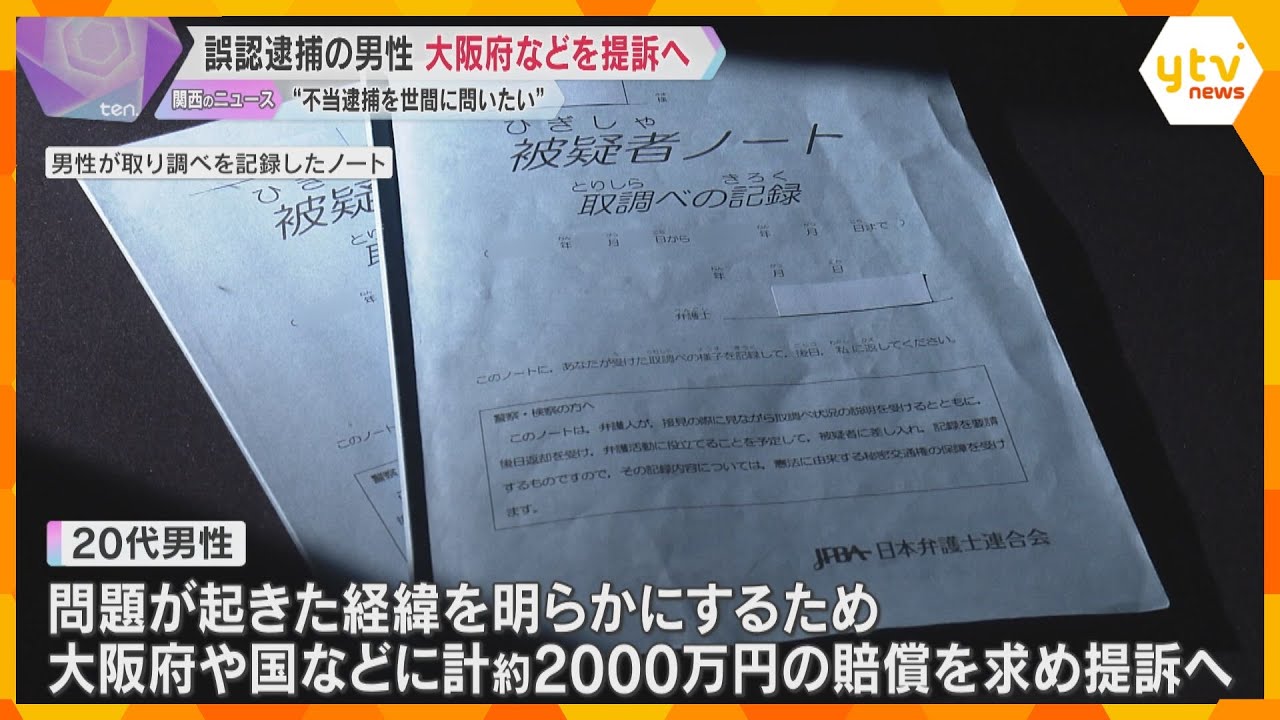 誤認逮捕の男性 大阪府などを提訴へ
ytv
news
ten.
関西のニュース
“不当逮捕を世間に問いたい”
男性が取り調べを記録したノート
様
ひぎしゃ
被疑者ノート
とりしら きろく
取調べの記録
( 年 月 日から 年 月 日まで )
年 月 日
弁護士
このノートに、あなたが受けた取調べの様子を記録して、後日、私に返してください。
警察・検察の方へ
このノートは、弁護人が、接見の際に見ながら取調べ状況の説明を受けるとともに、
後日返却を受け、弁護活動に役立てることを予定して、被疑者に差し入れ、記録を要請
するものですので、その記録内容については、憲法に由来する秘密交通権の保障を受け
ます。
JFBA 日本弁護士連合会
ひ
被疑
と
取
年
(
このノート
警察
20代男性
問題が起きた経緯を明らかにするため
大阪府や国などに計約2000万円の賠償を求め提訴へ